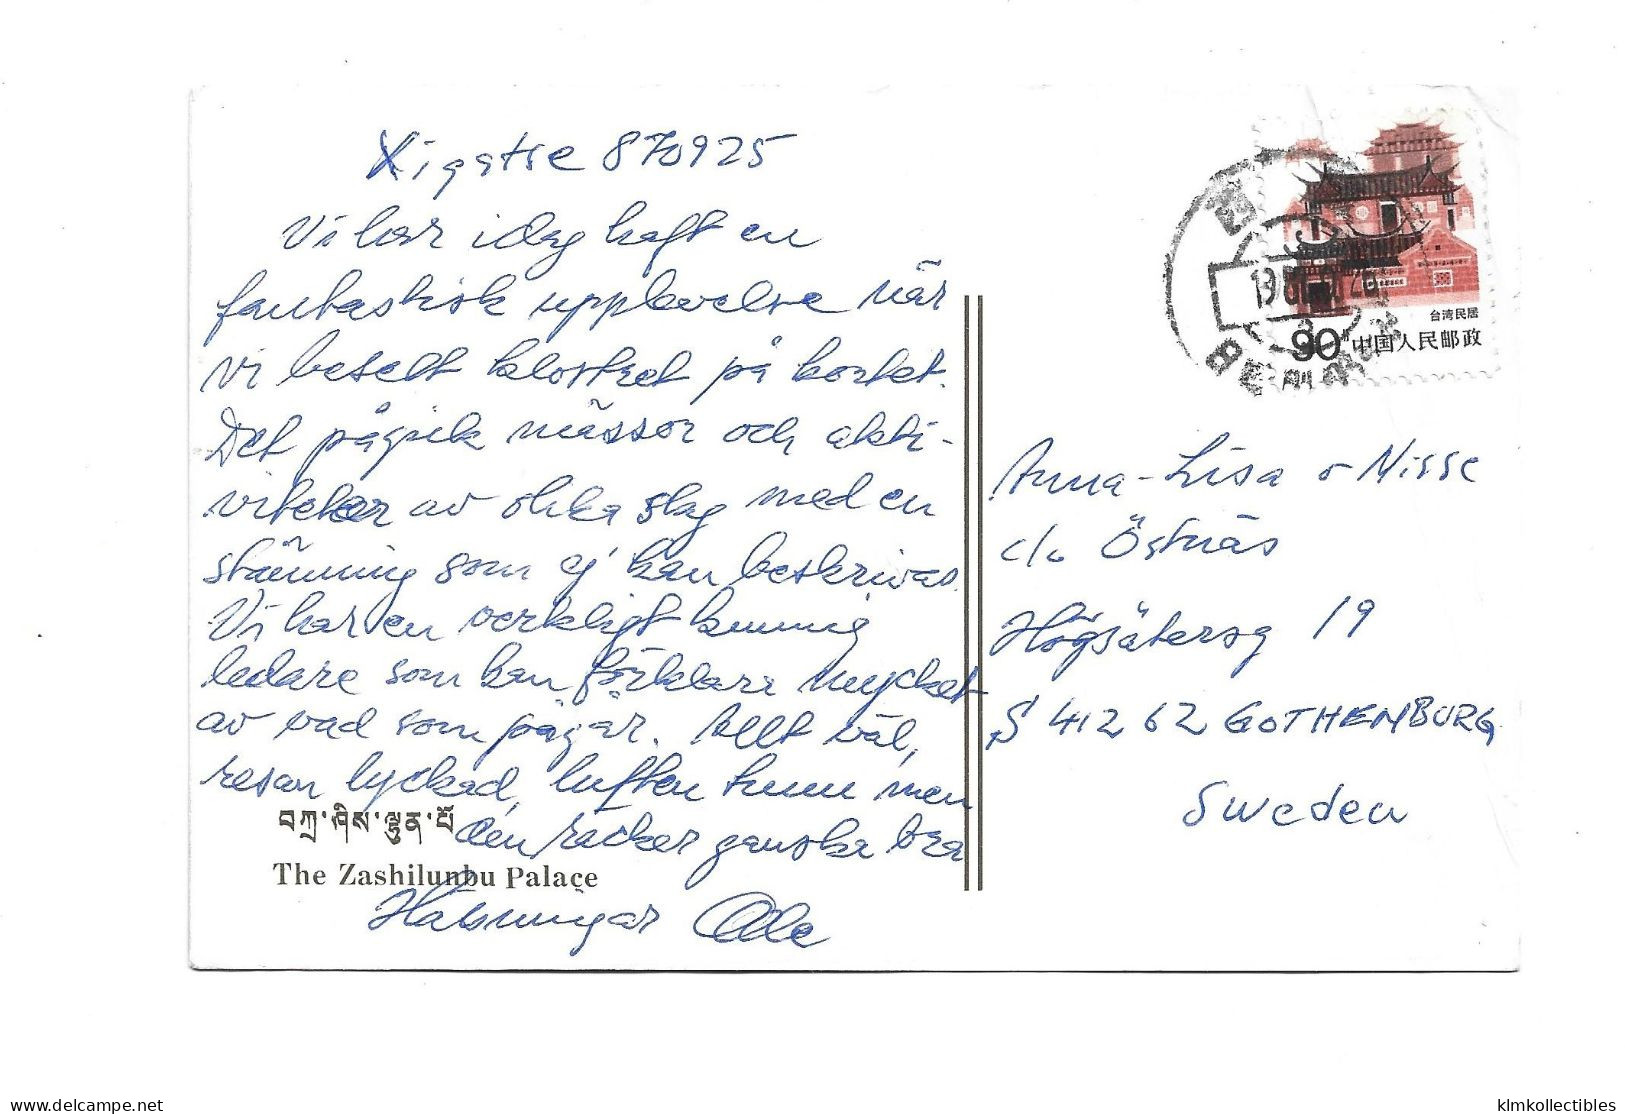 Xigatse 870925
Vi har idag haft en
fantastisk upplevelse när
vi besett klostret på kortet.
Det pågick mässor och akti-
viteter av olika slag med en
stämning som ej kan beskrivas.
Vi har en verkligt kunnig
ledare som kan förklara mycket
av vad som pågår. Allt väl,
resan lyckad, luften tunn men
den räcker ganska bra
བཀྲ་ཤིས་ལྷུན་པོ
The Zashilunbu Palace
Hälsningar Olle
台湾民居
90 中国人民邮政
Anna-Lisa o Nisse
c/o Östnäs
Högsätersg 19
S 412 62 GOTHENBURG
Sweden
delcampe.net
klmkollectibles